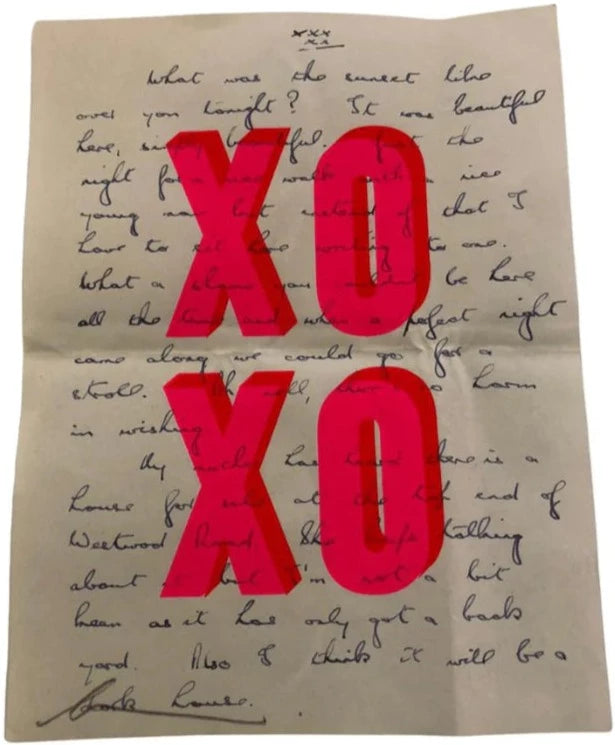 xxx
xx
What was the sunset like
over you tonight? It was beautiful
here, simply beautiful. Just the
night for a nice walk with a nice
young man but instead of that I
have to sit here writing to one.
What a shame you couldn't be here
all the time and when a perfect night
came along we could go for a
stroll. Oh well, no harm
in wishing
My mother has there is a
house for sale at the top end of
Westwood Road. She talking
about it but I'm not a bit
keen as it has only got a back
yard. Also I think it will be a
house.
XO
XO